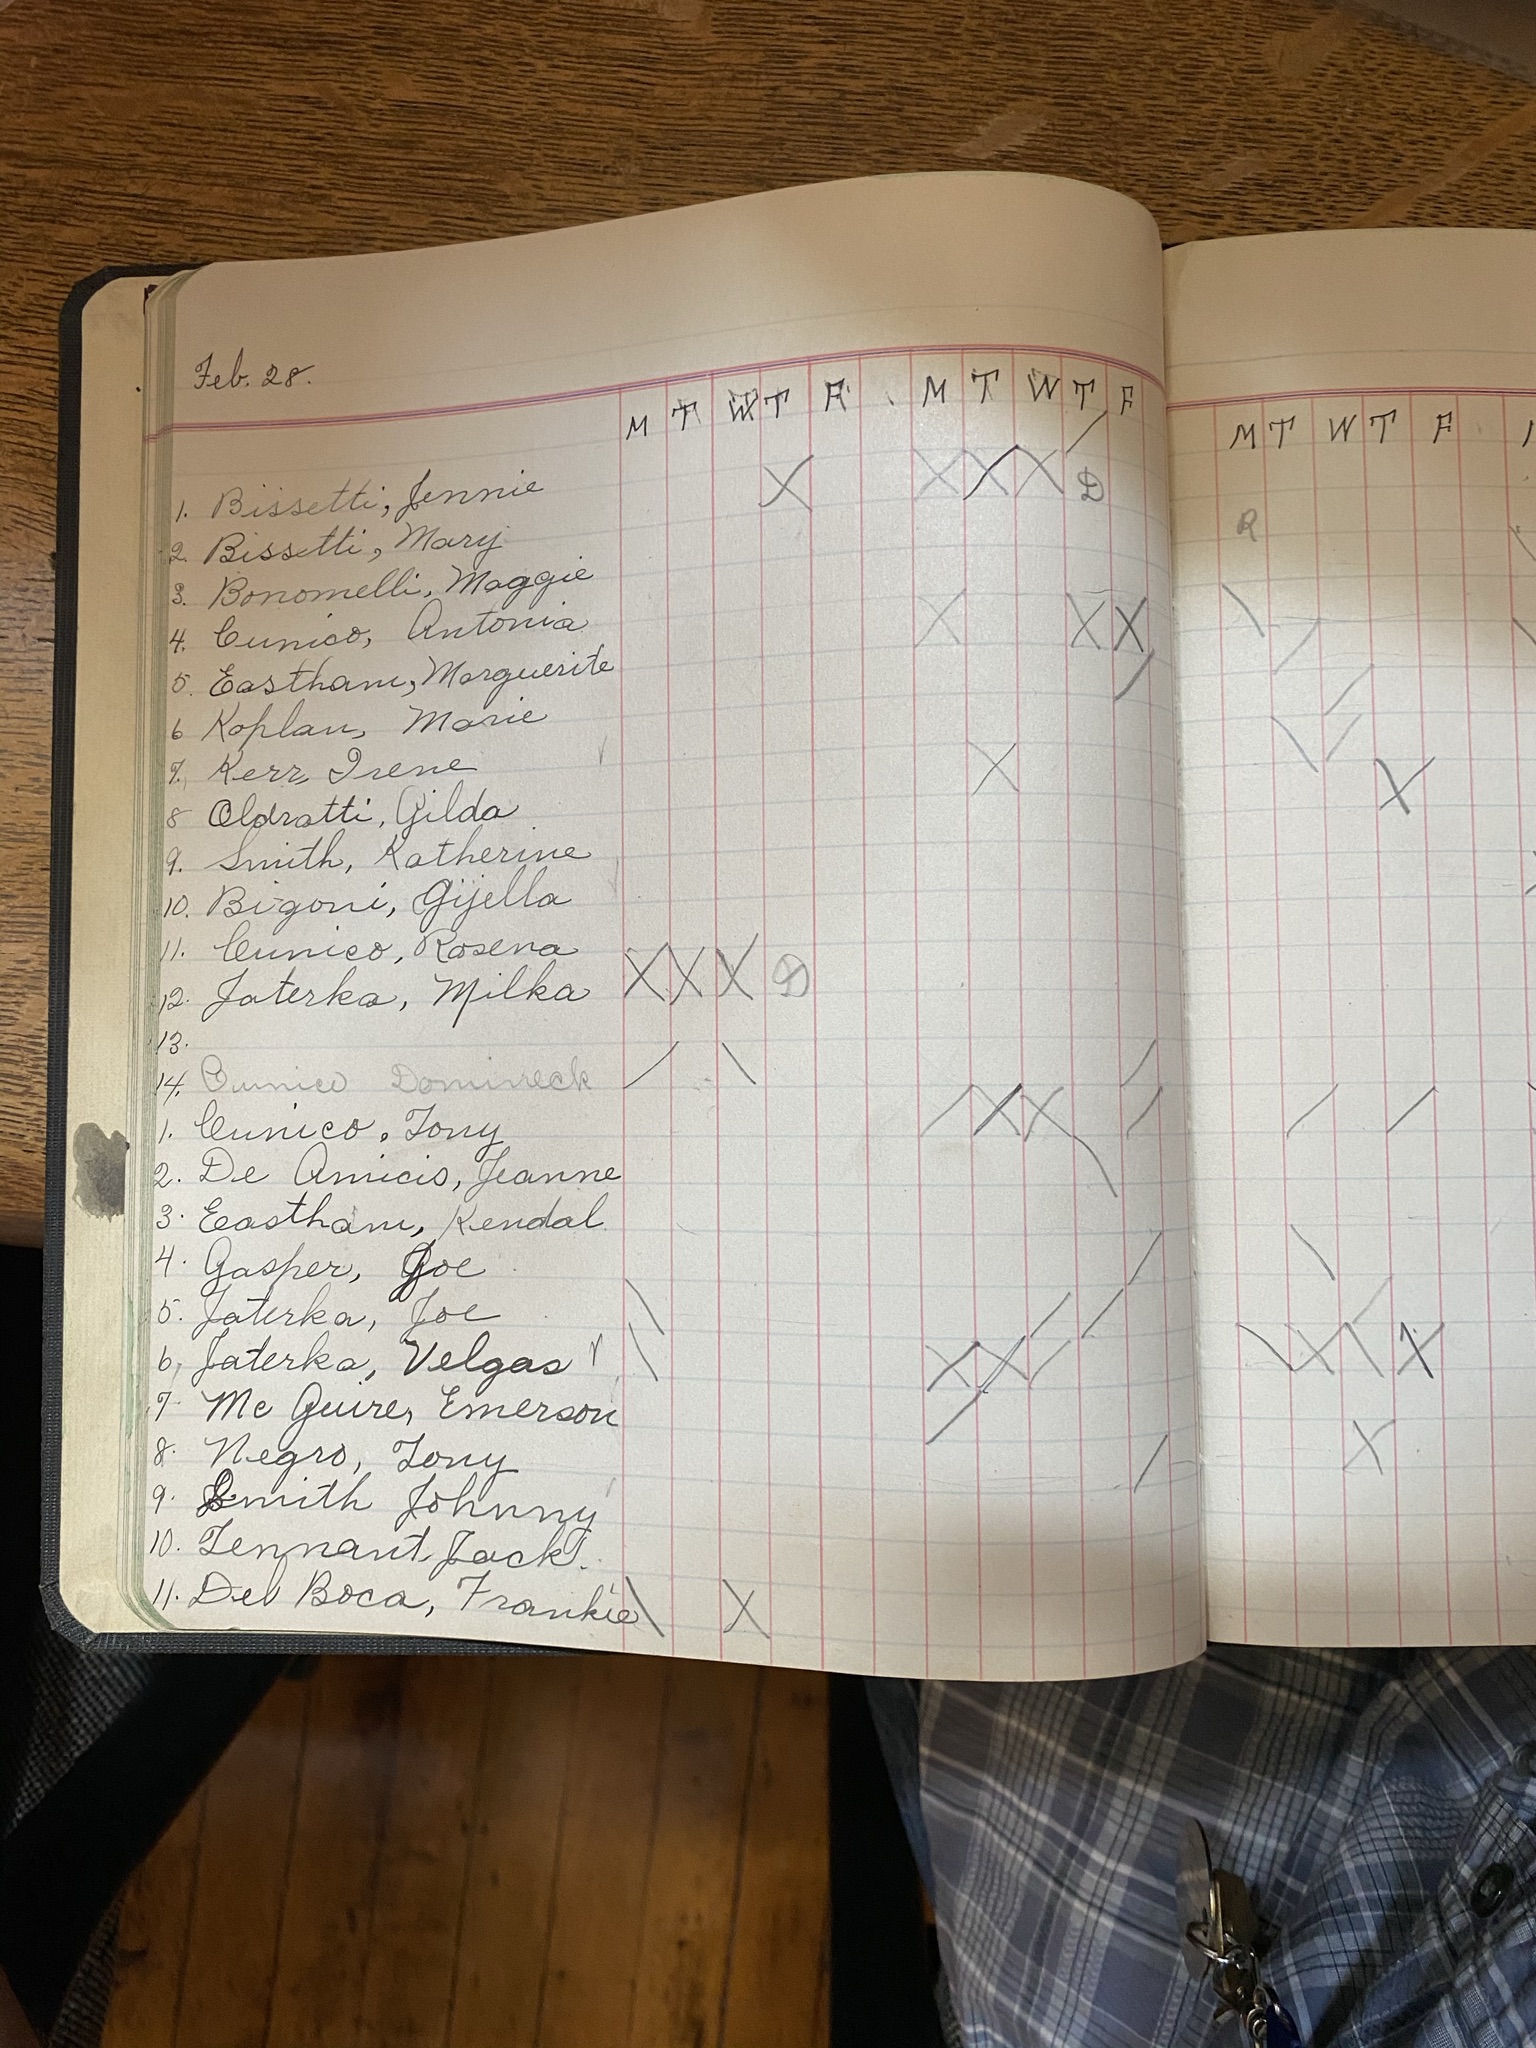 Feb. 28.
M T W T F M T W T F M T W T F
1. Bissetti, Jennie X X X X / D
2. Bissetti, Mary R
3. Bonomelli, Maggie \
4. Cunico, Antonia X X X /
5. Eastham, Marguerite / /
6 Koplan, Marie \ /
7. Kerr, Irene X X
8 Oldratti, Gilda
9. Smith, Katherine
10. Bigoni, Gijella
11. Cunico, Rosena
12. Jaterka, Milka X X X D
13.
14. Cunico Domineck / \ /
1. Cunico, Tony / X X / / /
2. De Amicis, Jeanne \
3. Eastham, Kendal
4. Gasper, Joe / \
5. Jaterka, Joe \ / / /
6, Jaterka, Velgas \ X X / \ X \ X
7 Mc Guire, Emerson /
8. Negro, Tony X
9. Smith Johnny /
10. Tennant, Jack.
11. Del Boca, Frankie \ X